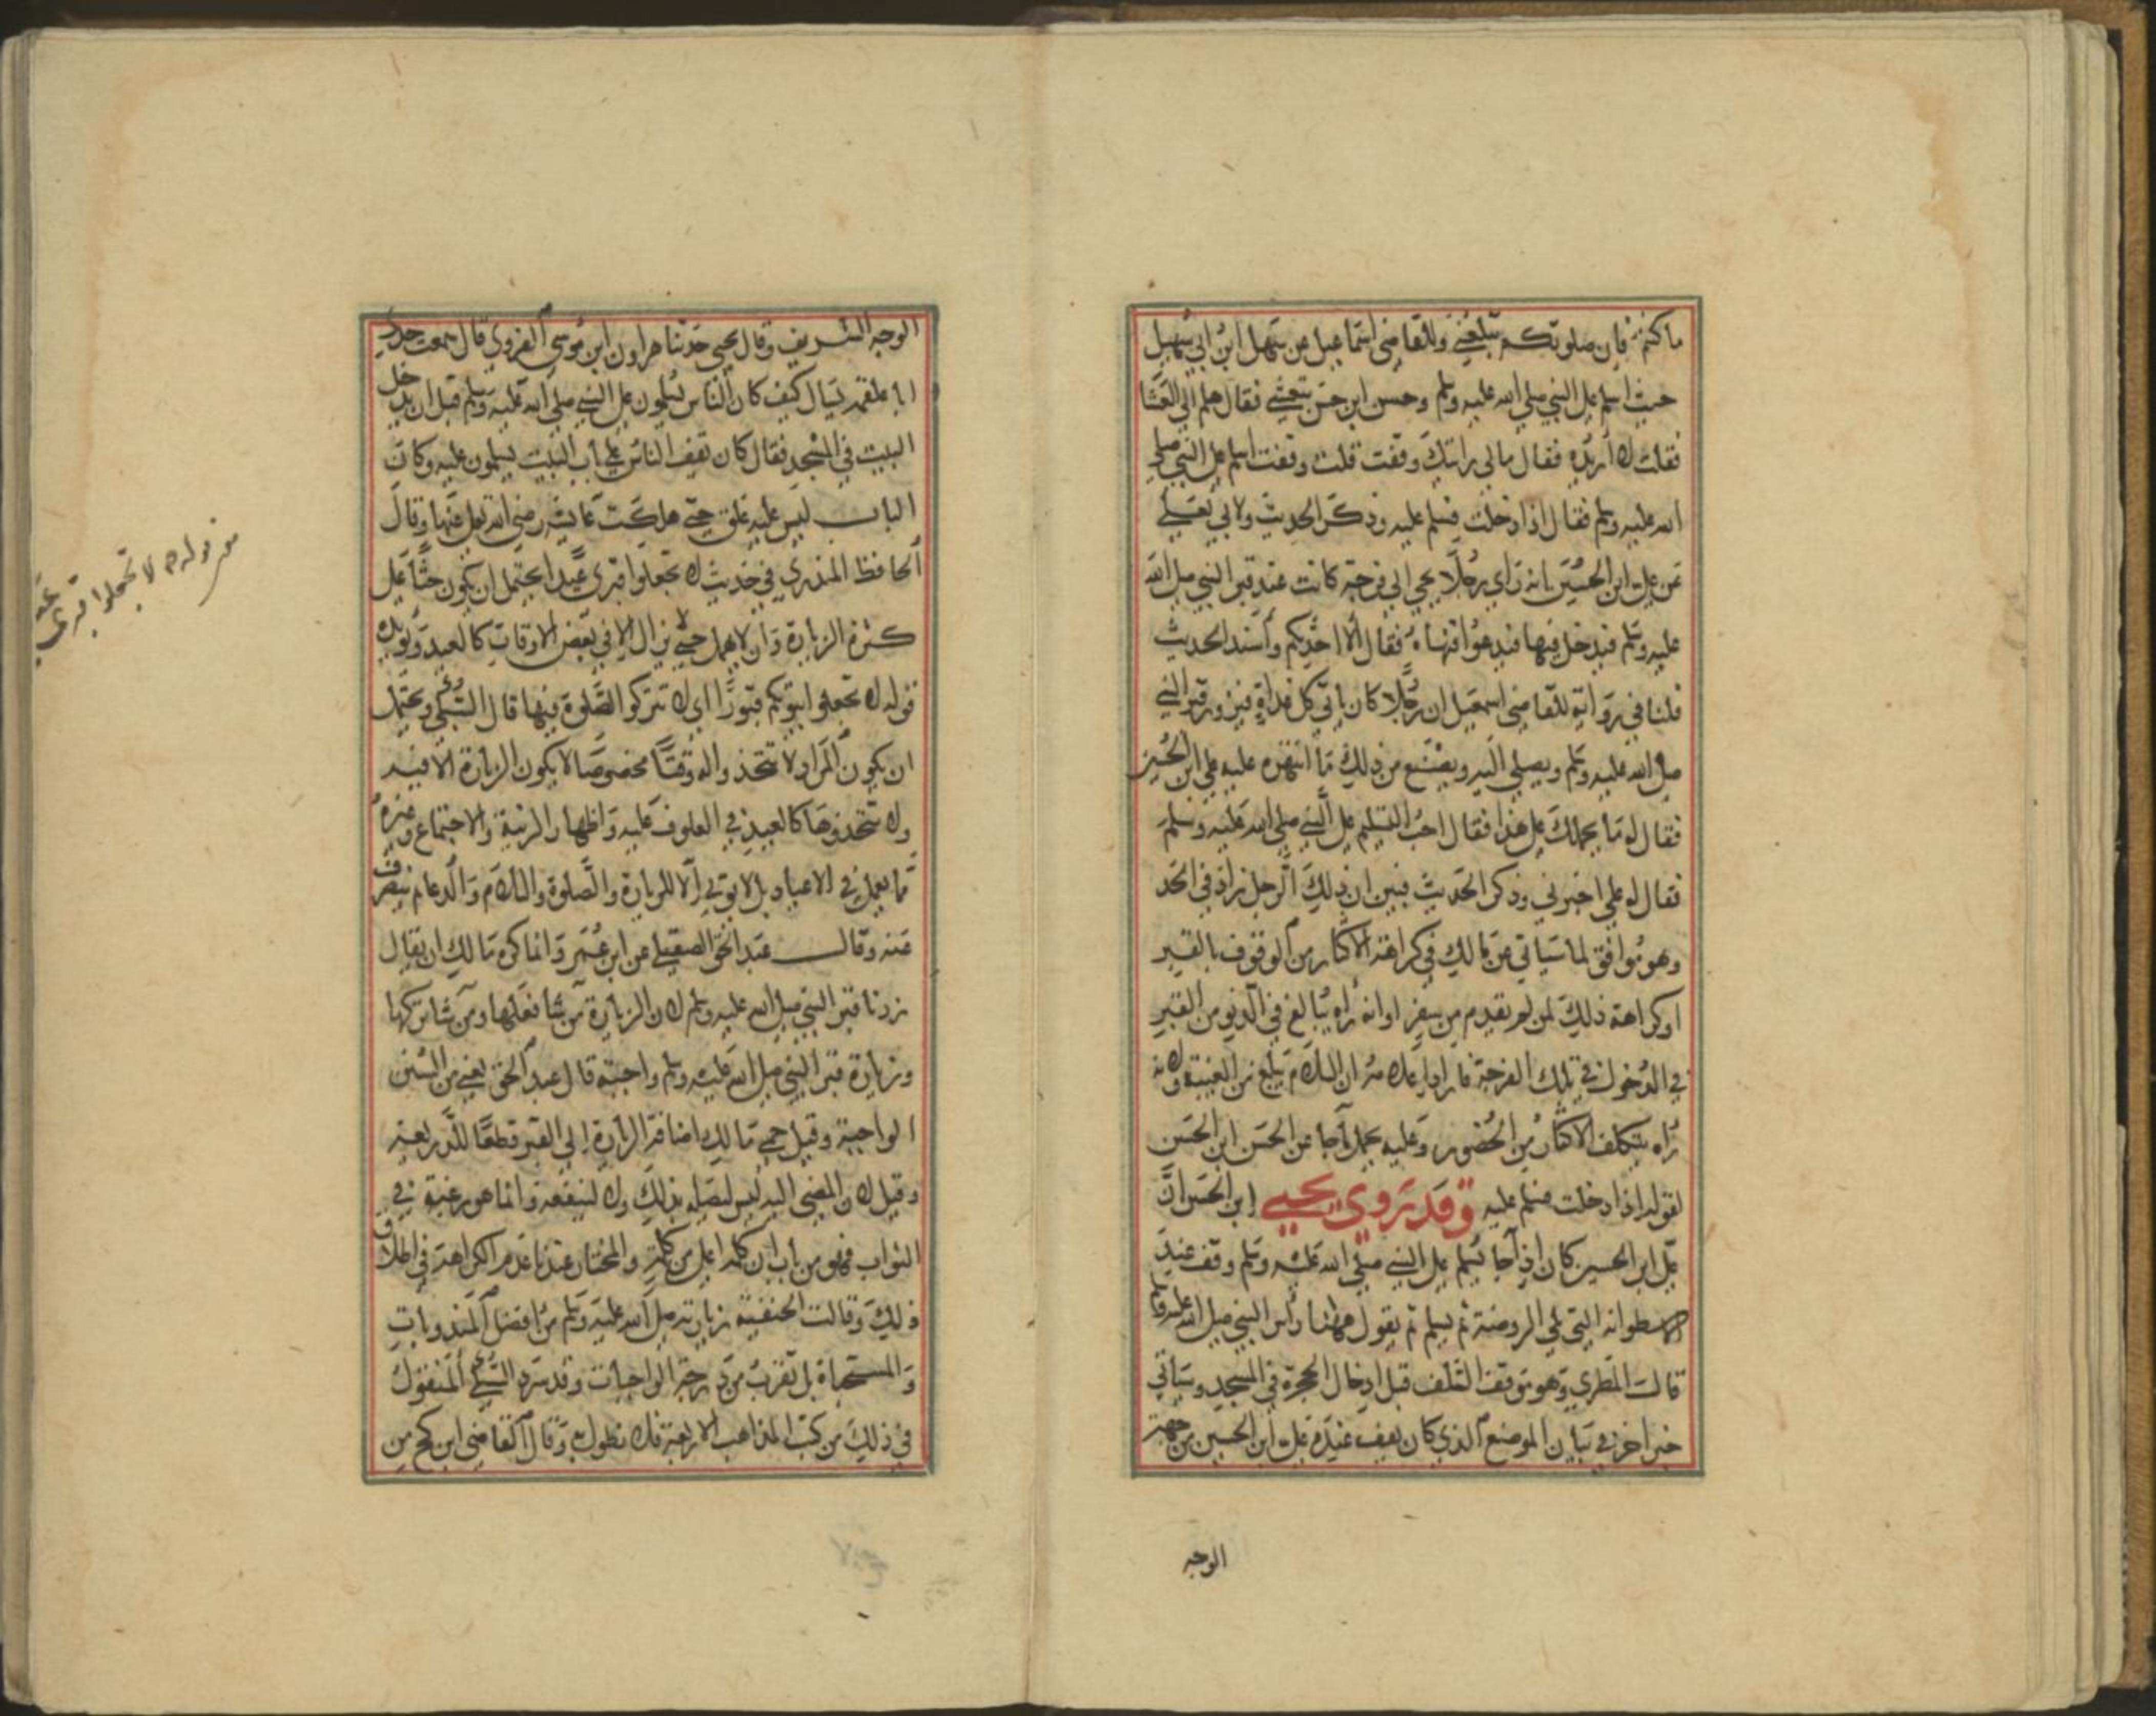 ما كنتم فان صلوتكم تبلغني وللقاضي اسماعيل عن سهل ابن ابي سهيل
جئت اسلم على النبي صلى الله عليه وسلم وحسن ابن حسن يتعشى فقال هلم الى العشا
فقلت لا اريده فقال مالي رايتك وقفت قلت وقفت اسلم على النبي صلى
الله عليه وسلم فقال اذا دخلت فسلم عليه وذكر الحديث ولابي يعلى
عن على ابن الحسين انه راي رجلا يجي الى فرجة كانت عند قبر النبي صلى الله
عليه وسلم فيدخل فيها فيدعو افنهاه فقال الا احدثكم وأسند الحديث
قلنا في رواية للقاضي اسمعيل ان رجلا كان ياتي كل غداة فيزور قبر النبي
صلى الله عليه وسلم ويصلي اليه ويصنع من ذلك ما انتهره عليه على ابن الحسين
فقال له ما يحملك على هذا فقال احب التسليم على النبي صلى الله عليه وسلم
فقال له علي اخبرني وذكر الحديث فبين ان ذلك الرجل زاد في الحد
وهو موافق لما سياتي عن مالك في كراهة الاكثار من الوقوف بالقبر
اوكراهة ذلك لمن لم يقدم من سفر اوانه راه يبالغ في الدنو من القبر
في الدخول في تلك الفرجة فاراد اعلامه ان السلام يبلغ من الغيبة ولانه
راه يتكلف الاكثار من الحضور وعليه يحمل ماجا عن الحسن ابن الحسن
لقوله اذا دخلت فسلم عليه وقد روى يحيى ابن الحسن ان
على ابن الحسين كان اذا جا يسلم على النبي صلى الله عليه وسلم وقف عند
الاسطوانه التي تلي الروضة ثم يسلم ثم يقول ههنا راس النبي صلى الله عليه وسلم
قالـ المطري وهو موقف السلف قبل ادخال الحجرة في المسجد وسياتي
خبر اخر في بيان الموضع الذي كان يقف عنده على ابن الحسين من جهة
الوجه
الوجه الشريف وقال يحيى حدثنا هارون ابن موسى الفروي قال سمعت جدي
ابا علقمه يسال كيف كان الناس يسلمون على النبي صلى الله عليه وسلم قبل ان يدخل
البيت في المسجد فقال كان يقف الناس على باب البيت يسلمون عليه وكان
الباب ليس عليه غلق حتى هلكت عايشه رضي الله تعالى عنها وقال
الحافظ المنذري في حديث لا تجعلوا قبري عيدا يحتمل ان يكون حثا على
كثرة الزيارة وان لا يهمل حتى لا يزال الا في بعض الاوقات كالعيد ويويده
قوله لا تجعلوا بيوتكم قبورا اي لا تتركوا الصلوة فيها قال السبكي ويحتمل
ان يكون المراد لا تتخذ واله وقتا مخصوصا لا يكون الزيارة الا فيه
ولا تتخذوها كالعيد في العكوف عليه واظهار الزينة والاجتماع وغيره
مما يعمل في الاعياد بل لا يوتى الا للزيارة والصلوة والسلام والدعا م ينصرف
عنه وقالـ عبد الحق الصقلي عن ابن عمر وانما كره مالك ان يقال
زرنا قبر النبي صلى الله عليه وسلم لان الزيارة من شا فعلها ومن شا تركها
وزيارة قبر النبي صلى الله عليه وسلم واجبة قال عبد الحق يعني من السنن
الواجبة وقيل حمى مالك اضافة الزيارة الى القبر قطعا للذريعة
وقيل لان المضي اليه ليس ليصله بذلك ولا لينفعه وانما هو رغبة في
الثواب فهو من باب ان كله اعلى من كلة والمختار عندنا عدم الكراهة في اطلاق
ذلك وقالت الحنفية زيارته صلى الله عليه وسلم من افضل المندوبات
والمستحباة بل تقرب من درجة الواجبات وقد سرد السبكي المنقول
في ذلك من كتب المذاهب الاربعة فلا نطول به وقال القاضي ابن كج من
قوله لا تجعلوا قبري